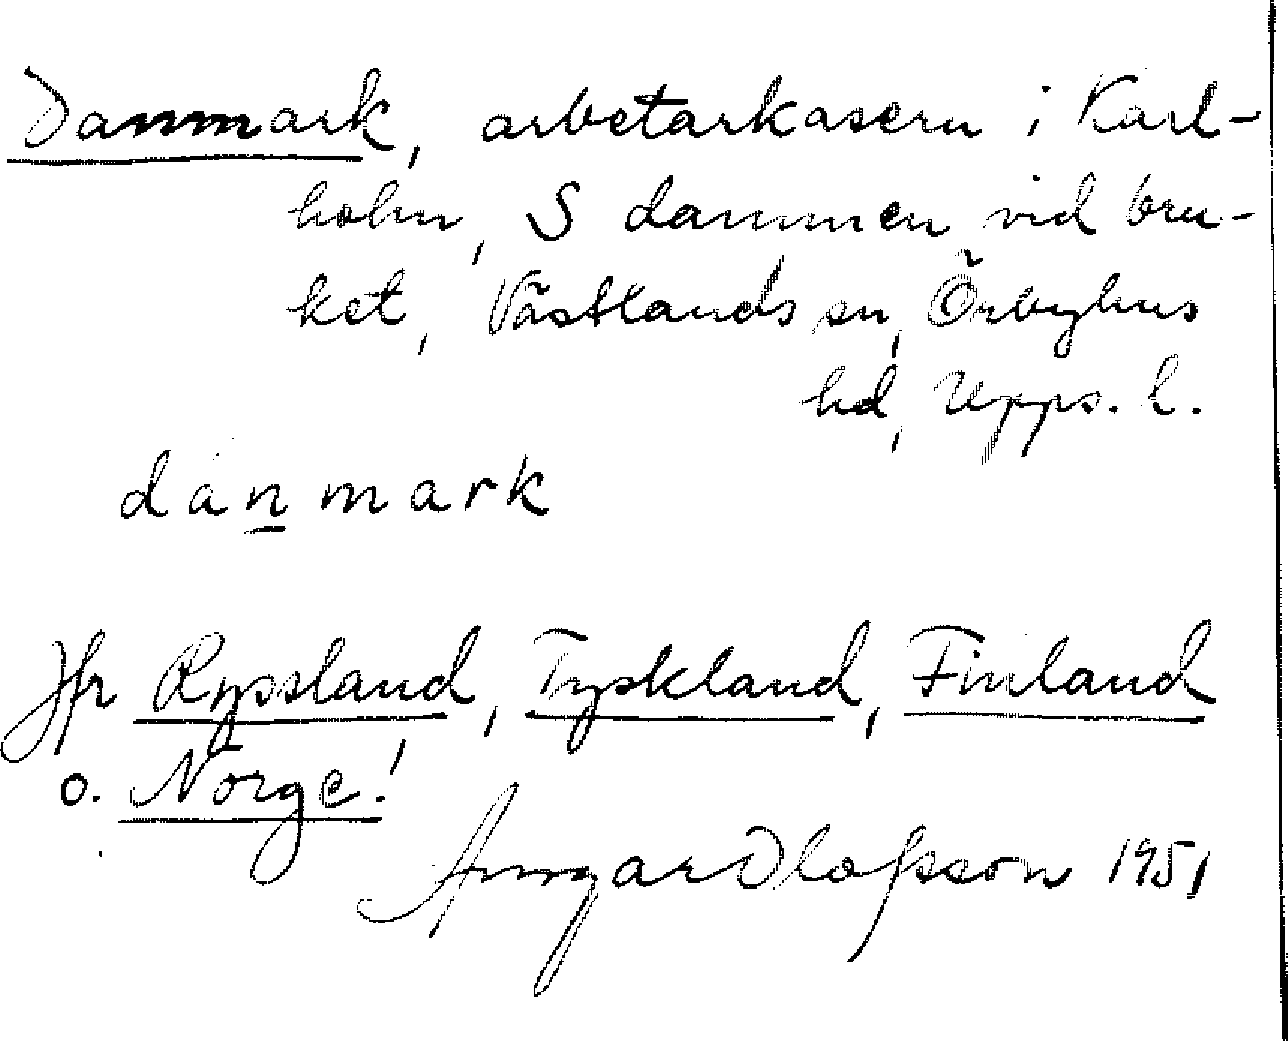 Danmark, arbetarkasern i Karl-
holm, S dammen vid bru-
ket, Västlands sn, Örbyhus
hd, Upps. l.
dánmark
Jfr Ryssland, Tyskland, Finland
o. Norge!
Olofsson 1951